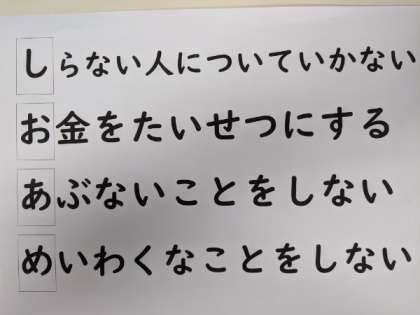 しらない人についていかない
お金をたいせつにする
あぶないことをしない
めいわくなことをしない